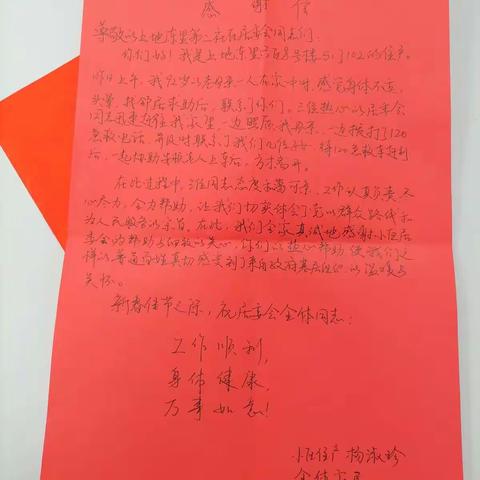 感谢信
尊敬的上地东里第二社区居委会同志们:
你们好!我是上地东里 号楼5门102的住户。
昨日上午,我 岁的老母亲一人在家中时,感觉身体不适,
头晕,找邻居求助后,联系了你们。三位热心的居委会
同志迅速赶往我家里,一边照顾我母亲,一边拨打了120
急救电话,并及时联系了我们 ,待120急救车赶到
后,一起协助 老人上车后,方才离开。
在此过程中,三位同志态度和蔼可亲,工作认真负责,尽
心尽力,全力帮助,让我们切实体会了党的群众路线和
为人民服务的宗旨。在此,我们全家真诚地感谢小区居
委会的帮助与细致的关心,你们的热心帮助使我们这
样的普通百姓真切感受到了来自政府基层组织的温暖与
关怀。
新春佳节之际,祝居委会全体同志:
工作顺利,
身体健康,
万事如意!
小区住户 杨淑珍
全体